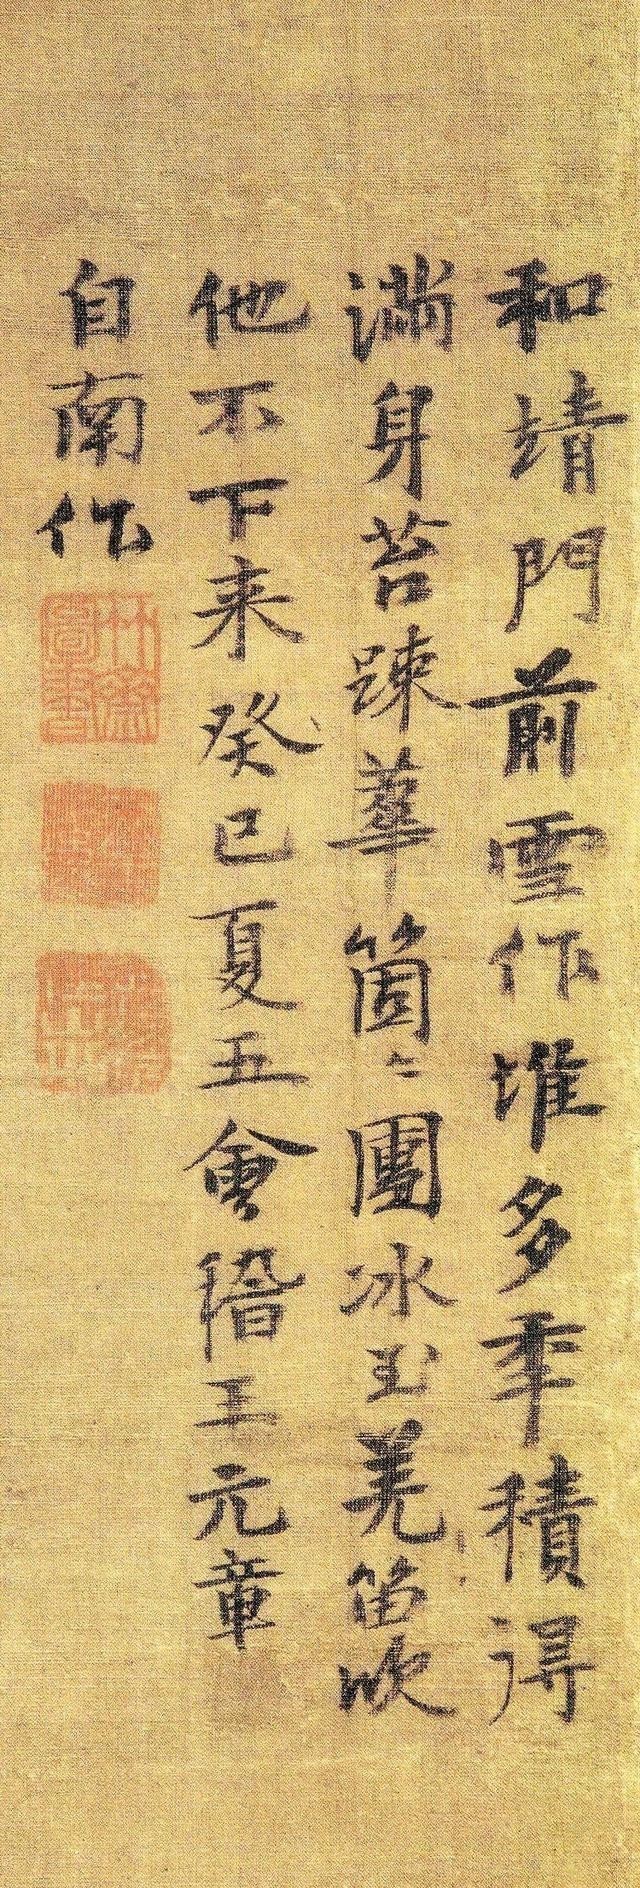 和靖門前雪作堆多年積得
滿身苔踈華箇〻團冰玉羌笛吹
他不下来癸巳夏五會稽王元章
自南作
竹齋圖書